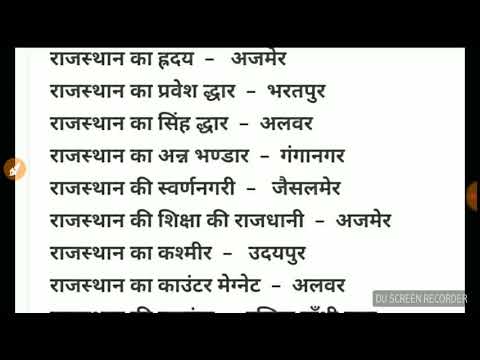 राजस्थान का ह्रदय - अजमेर
राजस्थान का प्रवेश द्धार - भरतपुर
राजस्थान का सिंह द्धार - अलवर
राजस्थान का अन्न भण्डार - गंगानगर
राजस्थान की स्वर्णनगरी - जैसलमेर
राजस्थान की शिक्षा की राजधानी - अजमेर
राजस्थान का कश्मीर - उदयपुर
राजस्थान का काउंटर मेग्नेट - अलवर
DU SCREEN RECORDER